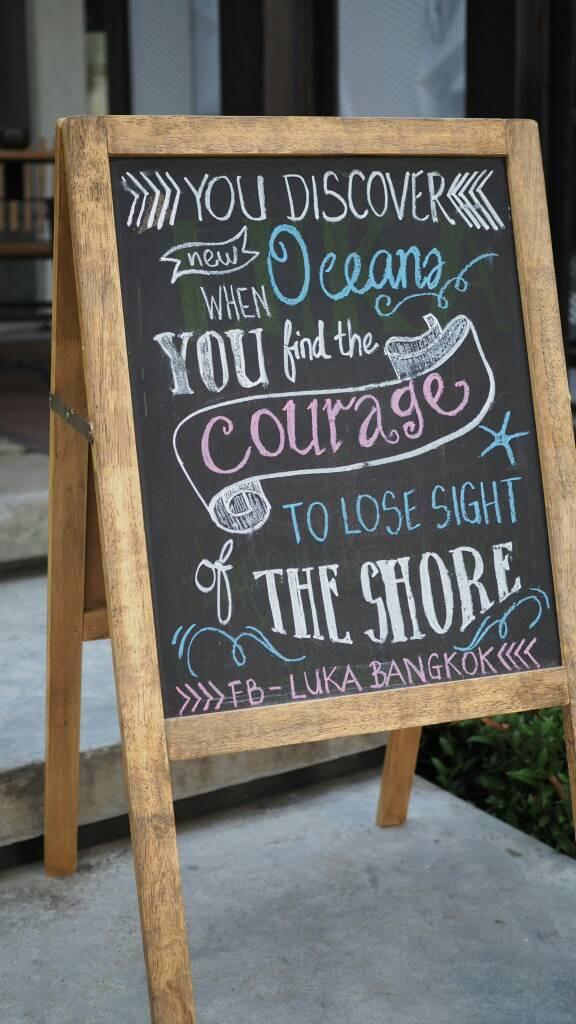 YOU DISCOVER
new Oceans
WHEN
YOU find the
courage
TO LOSE SIGHT
of THE SHORE
FB - LUKA BANGKOK